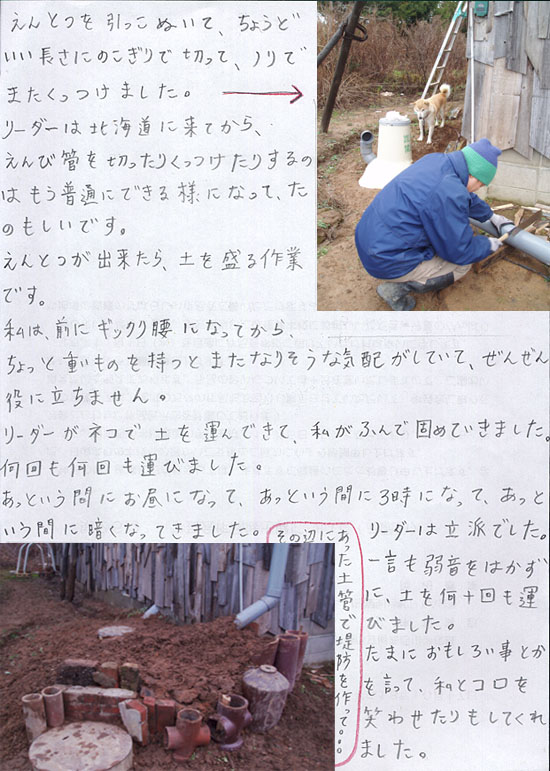 えんとつを引っこぬいて、ちょうど
いい長さにのこぎりで切って、ノリで
またくっつけました。
リーダーは北海道に来てから、
えんび管を切ったりくっつけたりするの
はもう普通にできる様になって、た
のもしいです。
えんとつが出来たら、土を盛る作業
です。
私は、前にギックリ腰になってから、
ちょっと重いものを持つとまたなりそうな気配がしていて、ぜんぜん
役に立ちません。
リーダーがネコで土を運んできて、私がふんで固めていきました。
何回も何回も運びました。
あっという間にお昼になって、あっという間に3時になって、あっと
いう間に暗くなってきました。
その辺に
あった土管で堤防を作って。。。
リーダーは立派でした。
一言も弱音をはかず
に、土を何十回も運
びました。
たまにおもしろい事とか
を言って、私とコロを
笑わせたりもしてくれ
ました。